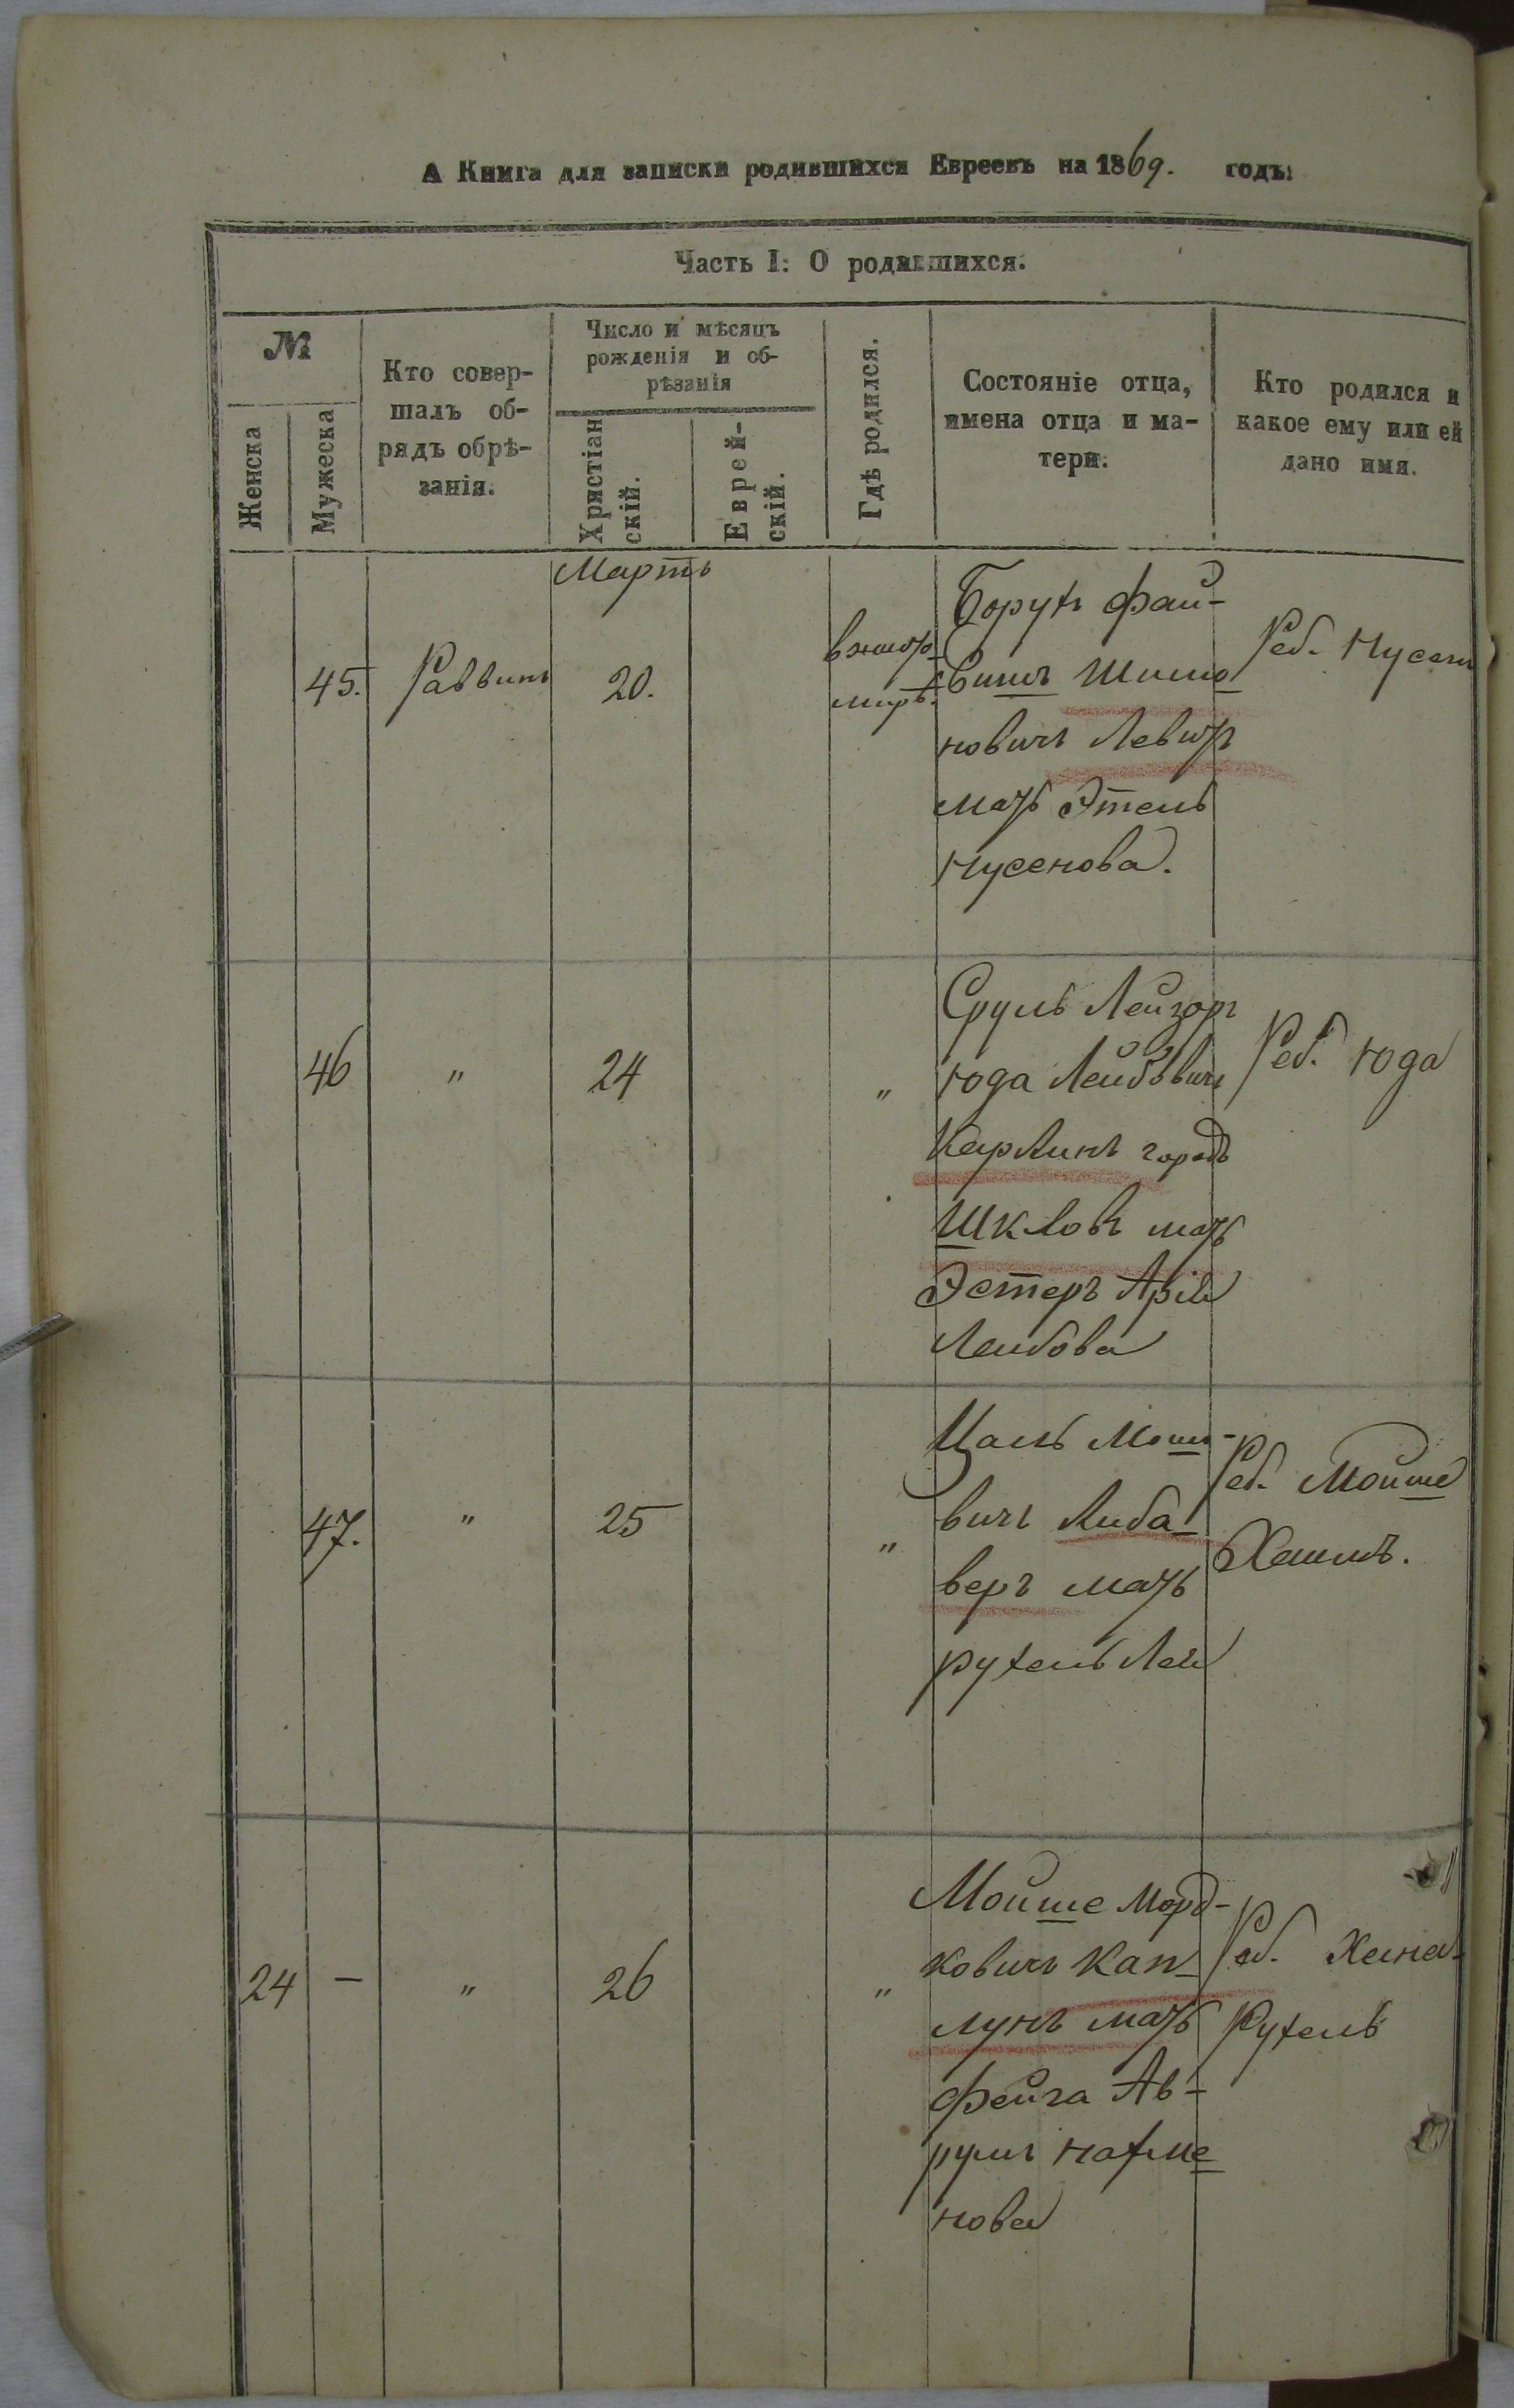 А Книга для записки родившихся Евреевъ на 1869. годъ:
Часть I: О родившихся.
№
Женска
Мужеска
Кто совер-
шалъ об-
рядъ обрѣ-
занія.
Число и мѣсяцъ
рожденія и об-
рѣзанія
Христіан
скій.
Еврей-
скій.
Гдѣ родился.
Состояніе отца,
имена отца и ма-
тери.
Кто родился и
какое ему или ей
дано имя.
Мартъ
45.
Раввинъ
20.
Борухъ Фай-
вишъ Шимо
новичъ Левитъ
мать Этель
Нусенова.
Реб. Нусенъ
46
"
24
"
Сруль Лейзоръ
Юда Лейбовичъ
Карлинъ городъ
Шкловъ мать
Эстеръ Арія
Лейбова
Реб. Юда
47.
"
25
"
Цаль Мош-
вичъ Либа-
веръ мать
Рухель Лея
Реб. Мойше
Хаимъ.
24
-
"
26
"
Мойше Морд-
ковичъ Кап-
лунъ мать
Фейга Ав-
румъ Нахме
нова
Реб. Хена-
Рухель